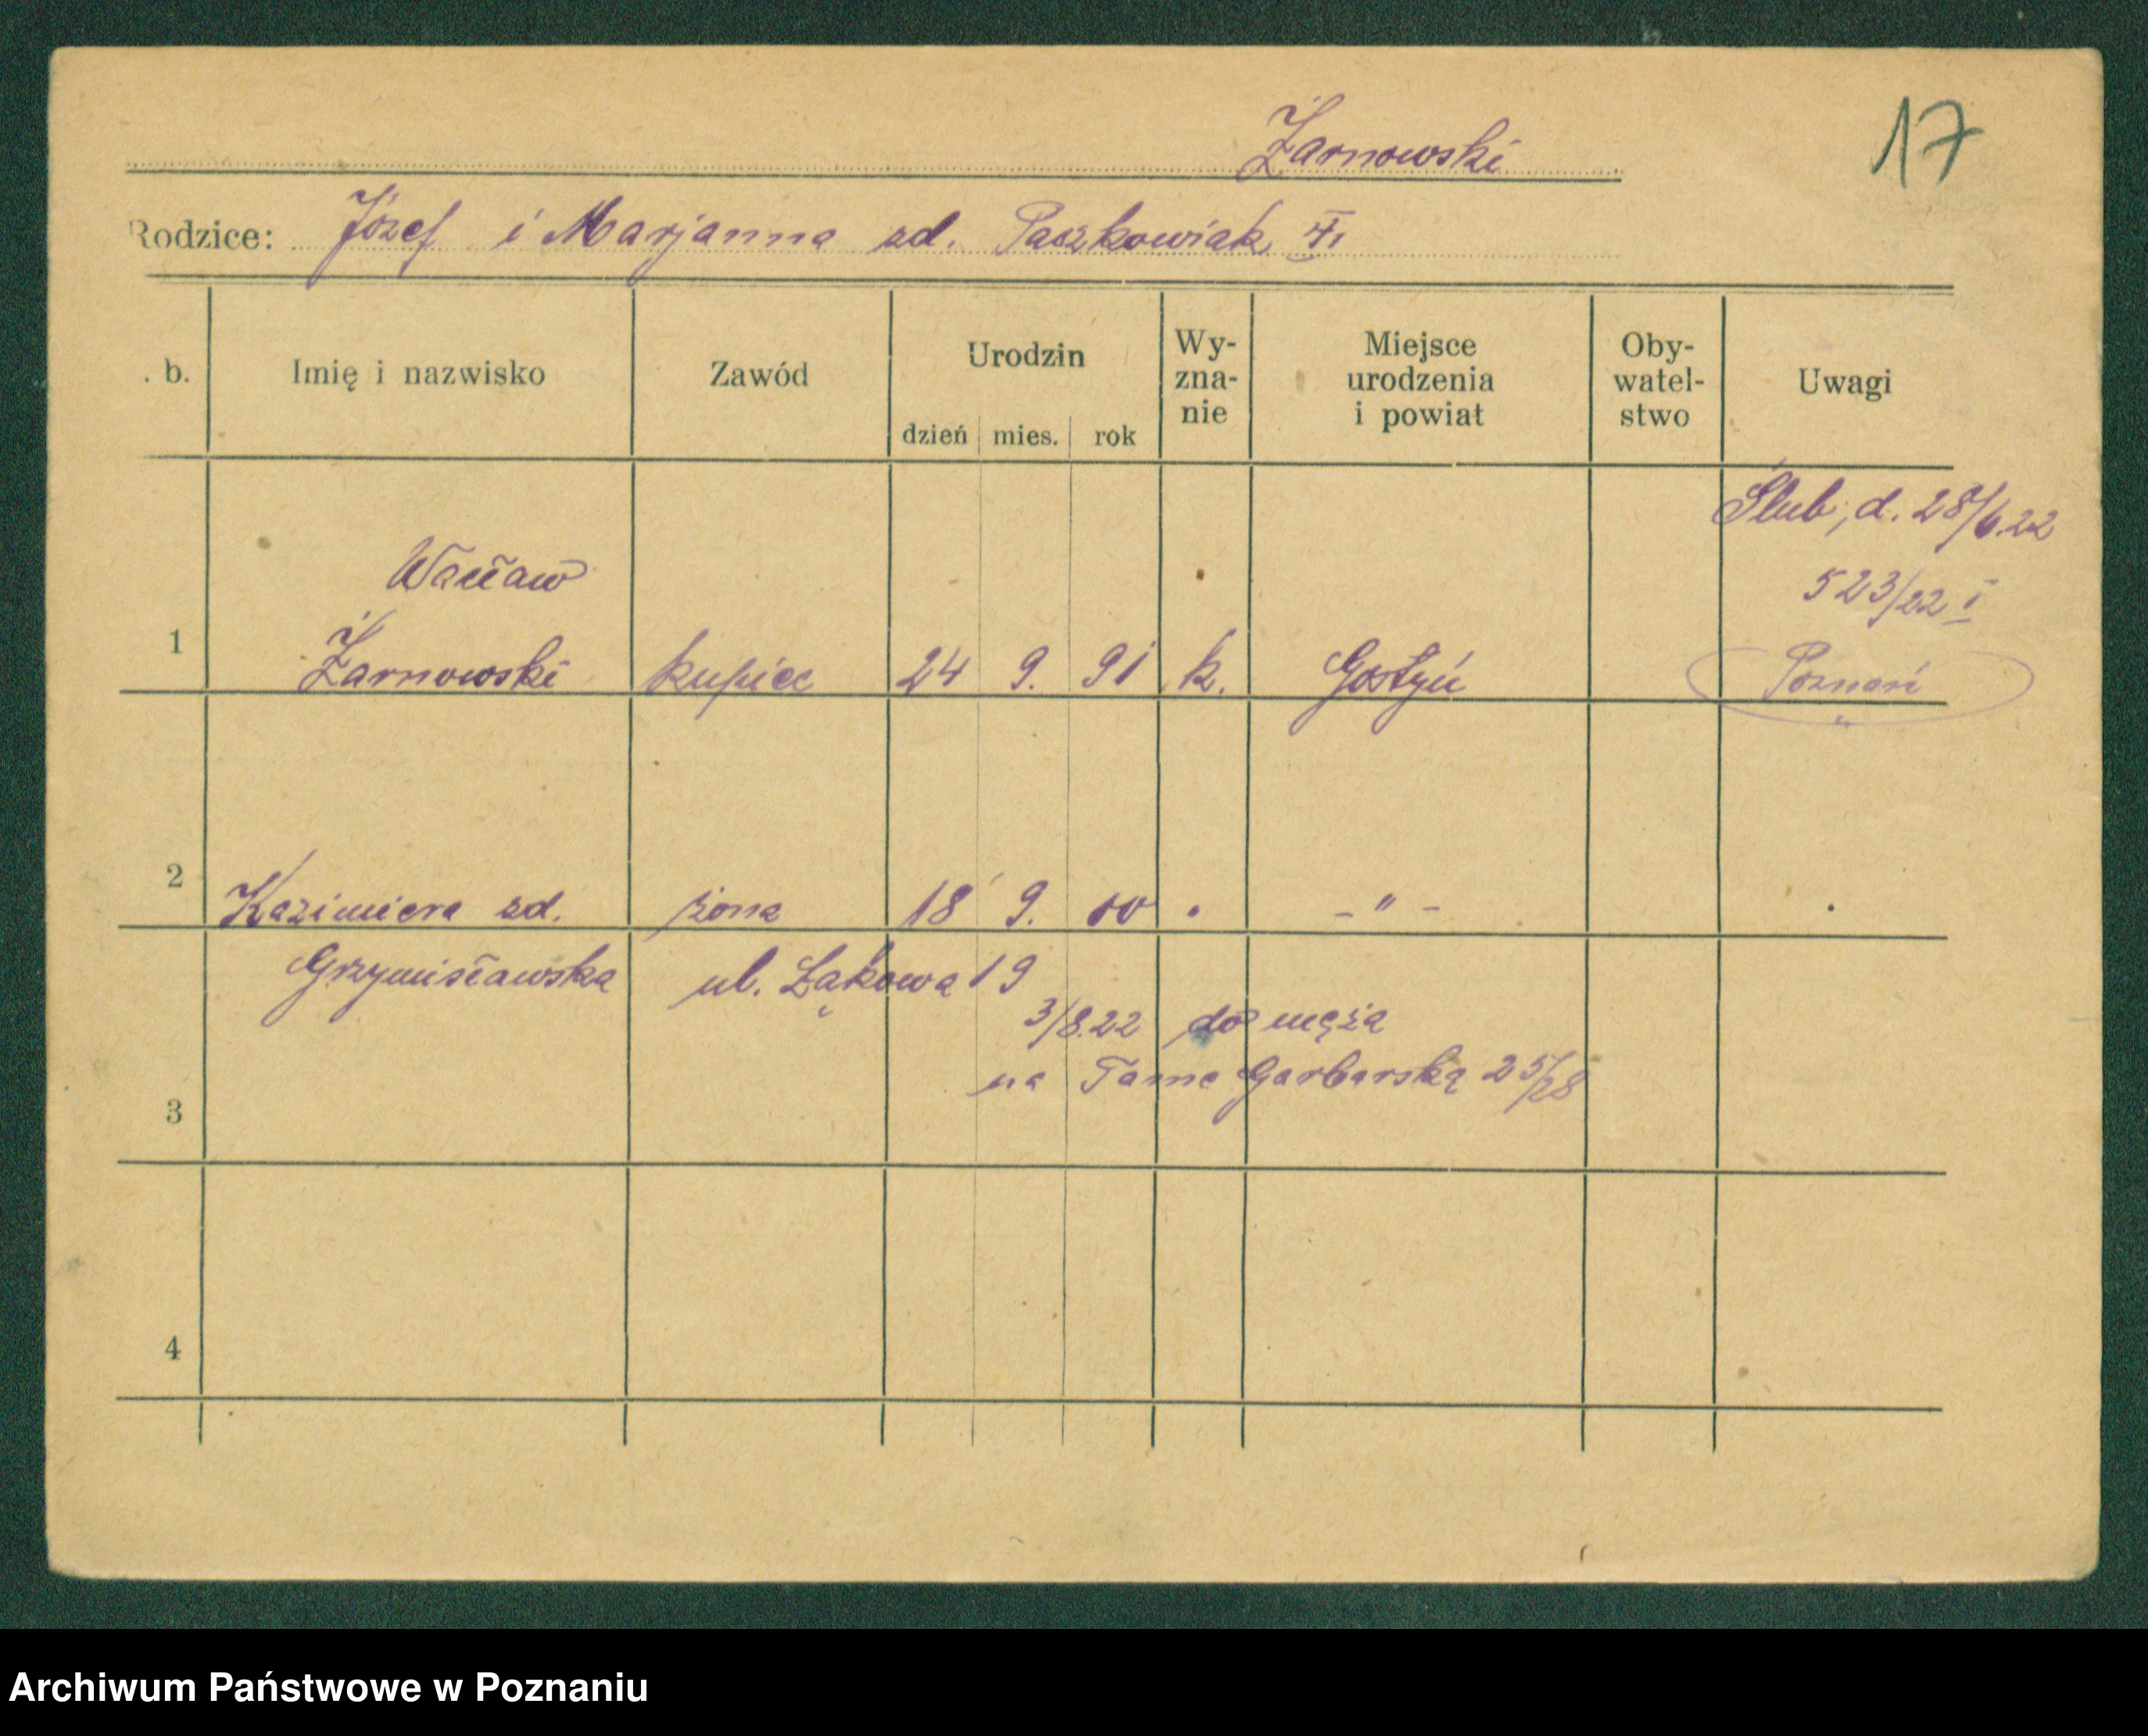 Żarnowski
17
Rodzice: Józef i Marjanna zd. Paszkowiak
. b. Imię i nazwisko Zawód Urodzin dzień mies. rok Wy-zna-nie Miejsce urodzenia i powiat Oby-watel-stwo Uwagi
Ślub, d. 28/6.22
Wacław 523/22 I
1 Żarnowski kupiec 24 9. 91 k. Gostyń Poznań
2 Kazimiera zd. żona 18 9. 00 " - " -
Grzymisławska ul. Łąkowa 19
3/8.22 do męża
na Tamę Garbarską 25/28
3
4
Archiwum Państwowe w Poznaniu